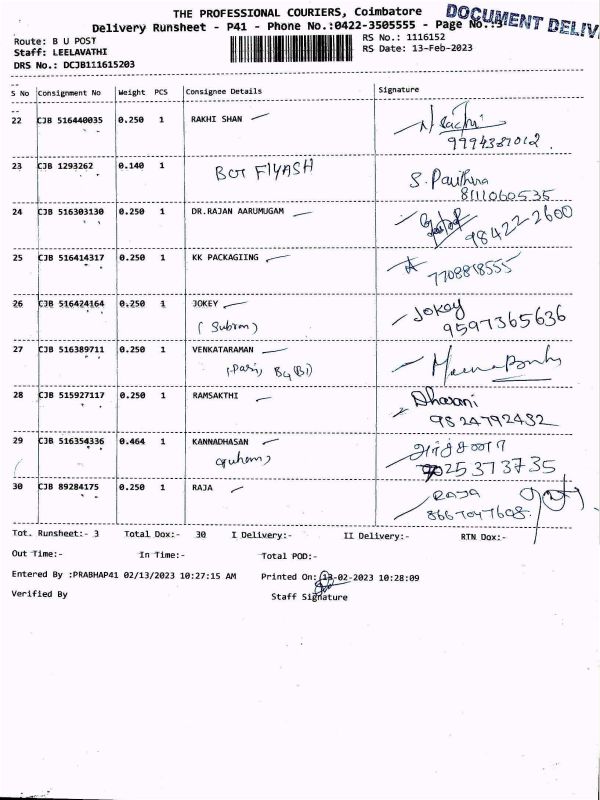 THE PROFESSIONAL COURIERS, Coimbatore
DOCUMENT DELIV
Delivery Runsheet - P41 - Phone No.:0422-3505555 - Page No.:3
Route: B U POST
RS No.: 1116152
Staff: LEELAVATHI
RS Date: 13-Feb-2023
DRS No.: DCJB111615203
S No Consignment No Weight PCS Consignee Details Signature
22 CJB 516440035 0.250 1 RAKHI SHAN
9994387012
23 CJB 1293262 0.140 1 BOT FlYASH S. Pavithra
8111060535
24 CJB 516303130 0.250 1 DR.RAJAN AARUMUGAM
98422-2600
25 CJB 516414317 0.250 1 KK PACKAGIING
7708818555
26 CJB 516424164 0.250 1 JOKEY Jokey
(Subram) 9597365636
27 CJB 516389711 0.250 1 VENKATARAMAN
28 CJB 515927117 0.250 1 RAMSAKTHI Dharani
9824792432
29 CJB 516354336 0.464 1 KANNADHASAN
25373735
30 CJB 89284175 0.250 1 RAJA RAJA
8667047608
Tot. Runsheet:- 3 Total Dox:- 30 I Delivery:- II Delivery:- RTN Dox:-
Out Time:- In Time:- Total POD:-
Entered By :PRABHAP41 02/13/2023 10:27:15 AM Printed On: 13-02-2023 10:28:09
Verified By Staff Signature